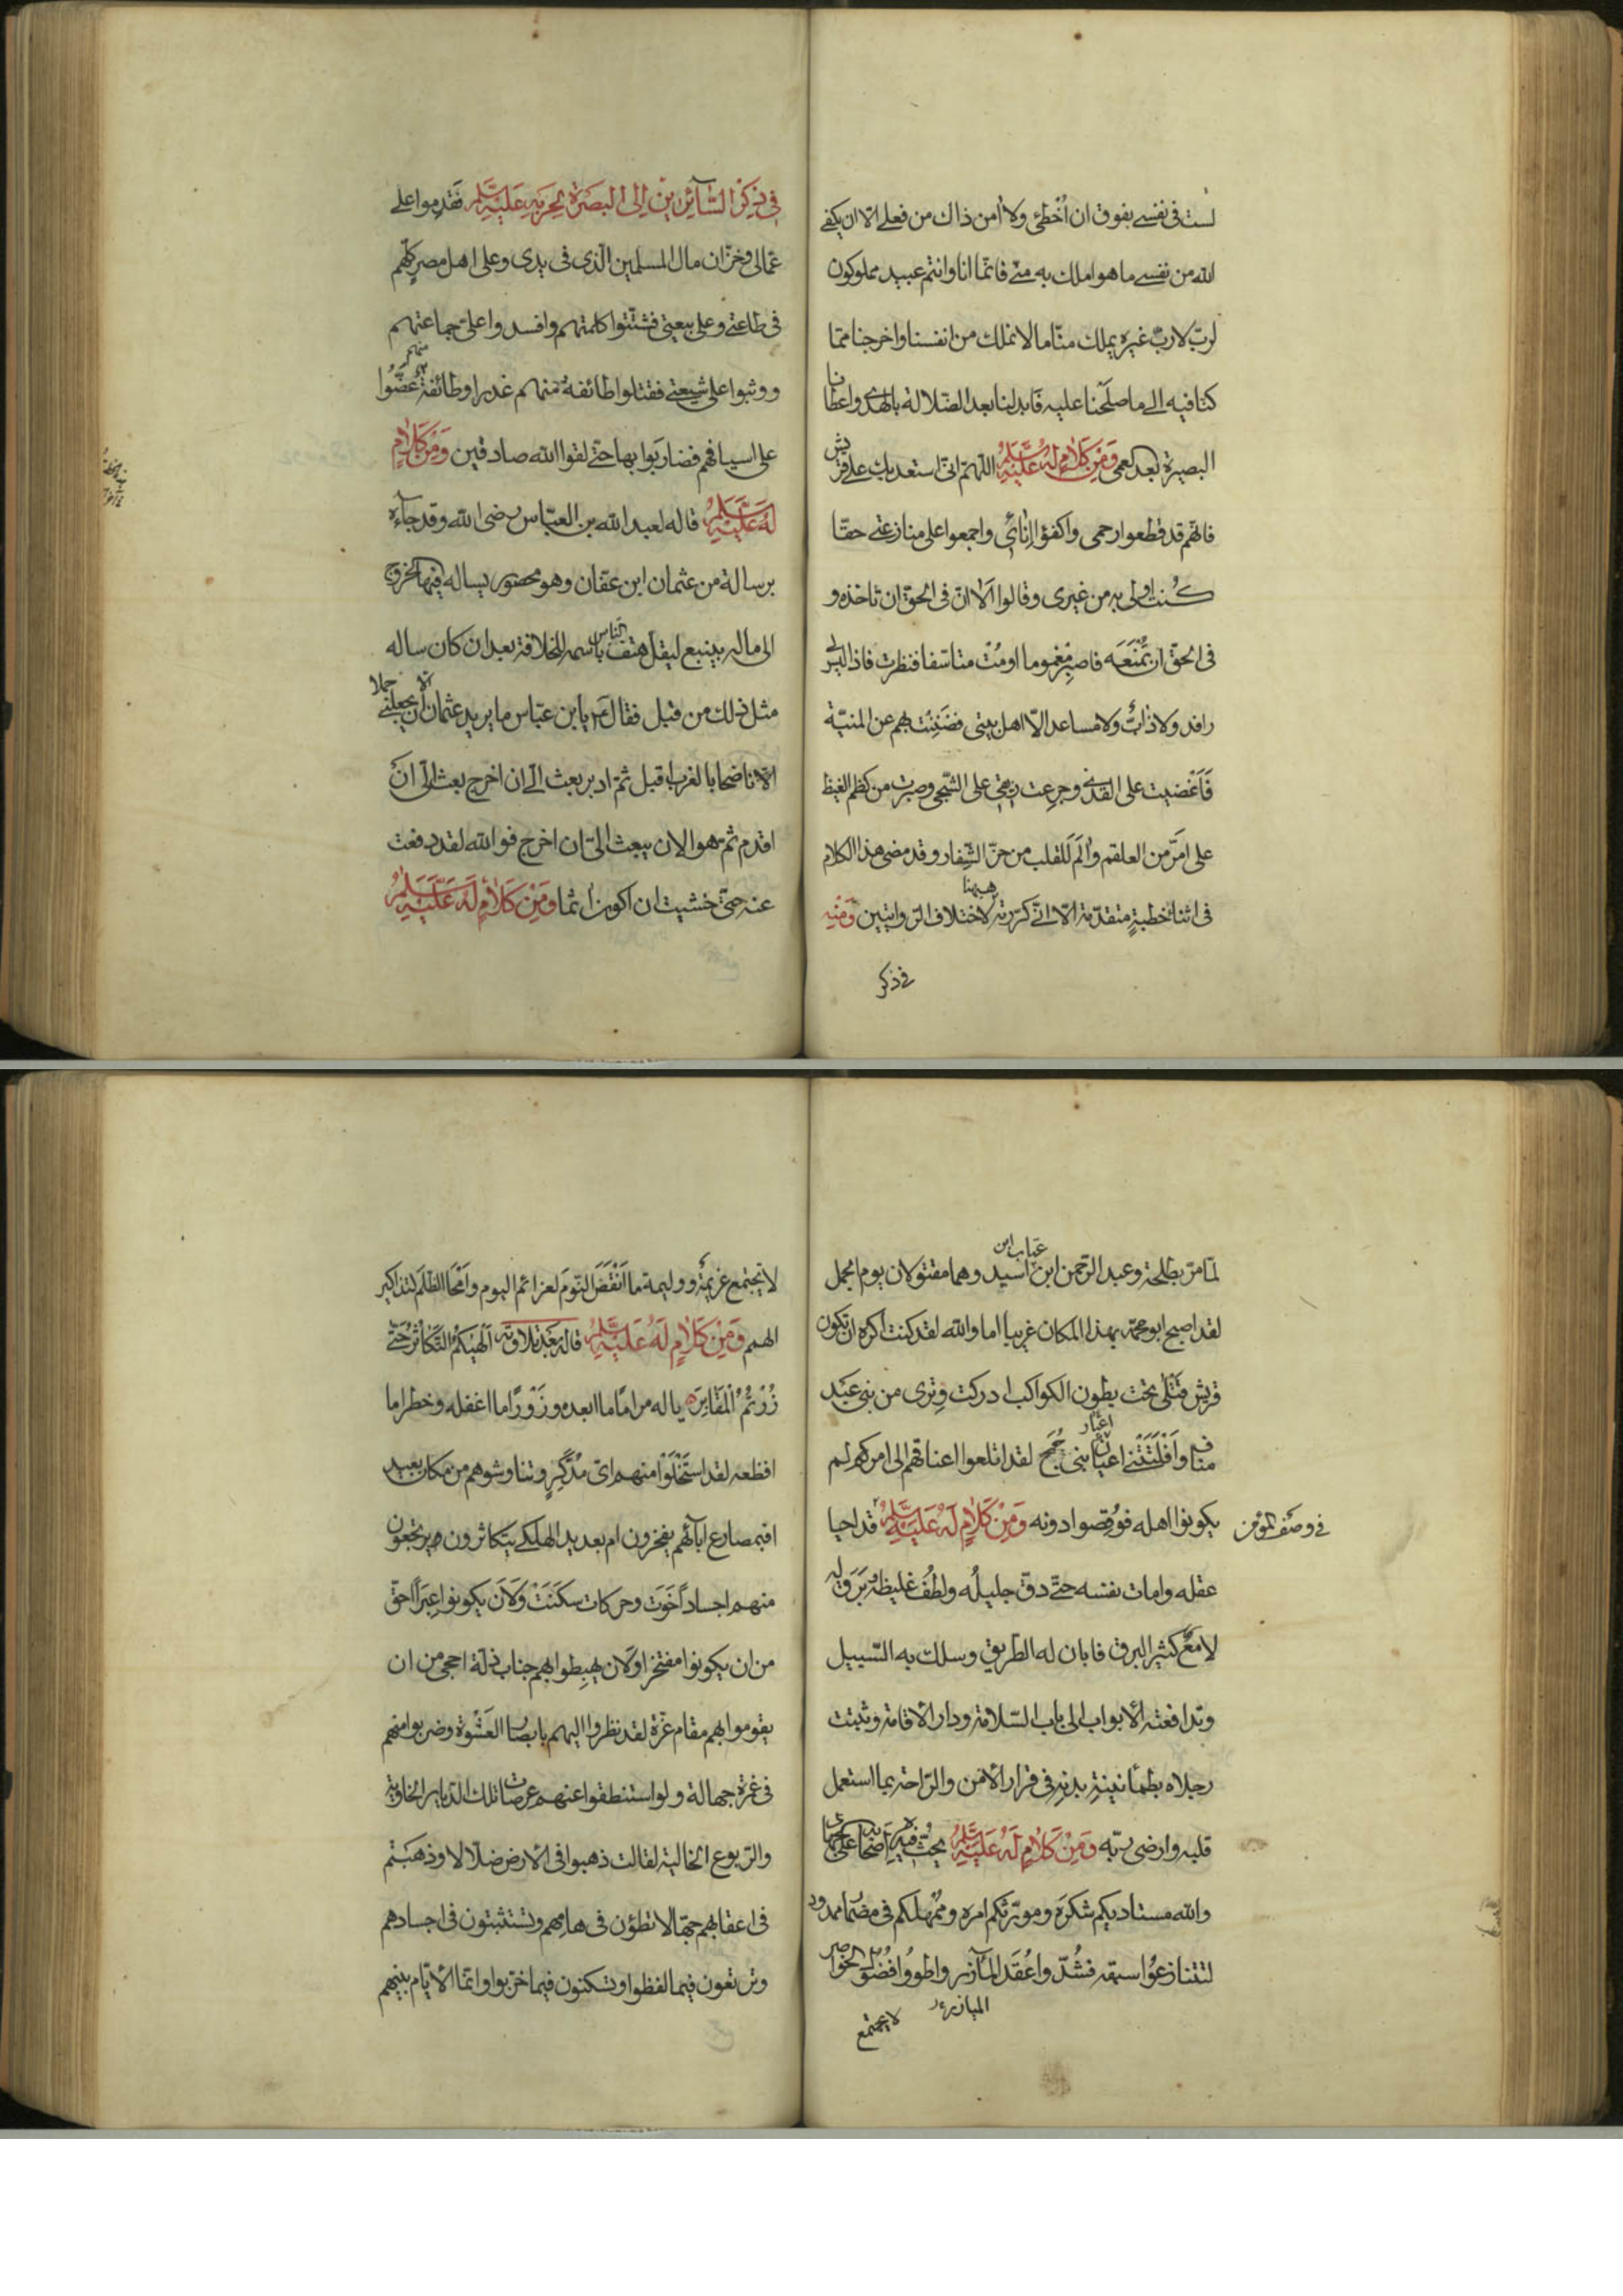 لست فى نفسى بفوق ان اُخْطئ ولا امن ذاك من فعلى الّا ان يكفى
الله من نفسى ما هو املك به منّى فانّما انا وانتم عبيد مملوكون
لربّ لا ربّ غيره يملك منّا ما لا نملك من انفسنا واخرجنا ممّا
كنّا فيه الى ما صلحنا عليه فابدلنا بعد الضّلالة بالهدى واعطانا
البصيرة بعد العمى وَمِنْ كَلَامٍ لَهُ عَلَيْهِ السَّلَمُ اللّهمّ انّى استعديك على قريش
فانّهم قد قطعوا رحمى واكفؤا اِنائى واجمعوا على منازعتى حقّا
كُنت اولى به من غيرى وقالوا الَا انّ فى الحقّ ان تاخذه و
فى الحقّ ان تُمْنَعَه فاصبر مغموما او مُت متاسّفا فنظرت فاذا ليس لى
رافد ولا ذابٌّ ولا مساعد الّا اهل بيتى فضَنِنْت بهم عن المنيّة
فَاَغْضيت على القذى وجرعت ريقى على الشّجى وصبرت من كظم الغيظ
على امَرّ من العلقم واٰلَم للقلب من حزّ الشِّفار وقد مضى هذا الكلام
فى اثناء خطبةٍ متقدّمة الّا انّى كرّرته ههنا لاختلاف الرّوايتين وَمِنْهِ
فى ذكر
فِى ذِكْرِ السَّآئِرِيْنَ اِلَى الْبَصْرَةِ لِحَرْبِهِ عَلَيْهِ السَّلَمُ فَقَدِموا على
عمّالى وخزّان مال المسلمين الّذى فى يدى وعلى اهل مصرٍ كلّهم
فى طاعتى وعلى بيعتى فشتّتوا كلمتهم وافسدوا علىّ جماعتهم
ووثبوا على شيعتى فقتلوا طائفةً منهم غدرا وطائفة منهم عَضُّوا
على اسيافهم فضاربوا بها حتّى لقوا الله صادقين وَمِنْ كَلَامٍ
لَهُ عَلَيْهِ السَّلَمُ قاله لعبد الله بن العبّاس رضى الله وقد جآءه
برسالة من عثمان ابن عفّان وهو محصور يساله فيها الخروج
الى ماله بينبع ليقلّ هتف النّاس باسمه للخلافة بعد ان كان ساله
مثل ذلك من قبل فقال ع يا بن عبّاس ما يريد عثمان الّا ان يجعلنى جملا
الّا ناضحا بالغرب اقبل ثمّ ادبر بعث الّى ان اخرج بعث الّى انْ
اقدم ثمّ هو الان يبعث الىّ ان اخرج فو الله لقد دفعت
عنه حتّى خشيت ان اكون اثما وَمِنْ كَلَامٍ لَهُ عَلَيْهِ السَّلَمُ
لمّا مرّ بطلحة وعبد الرّحمن ابن عتاب ابن اسيد وهما مقتولان يوم الجمل
لقد اصبح ابو محمّد بهذا المكان غريبا اما والله لقد كنت اكره ان تكون
قريش قَتْلى تحت بطون الكواكب ادركت وترى من بنى عبد
مناف واَفْلَتَتْنى اعيان اعيار بنى جُمَح لقد اتلعوا اعناقهم الى امر لم
يكونوا اهله فوُقِصوا دونه وَمِنْ كَلَامٍ لَهُ عَلَيْهِ السَّلَمُ قد احيا
فى وصف المؤمن
عقله وامات نفسه حتّى دقّ جليلُه ولطُف غليظه وبَرَق له
لامعٌ كثير البرق فابان له الطّريق وسلك به السّبيل
وتدافعته الابواب الى باب السّلامة ودار الاقامة وثبتت
رجلاه بطمأنينةِ بدنِهِ فى قرار الامن والرّاحة بما استعمل
قلبه وارضى ربّه وَمِنْ كَلَامٍ لَهُ عَلَيْهِ السَّلَمُ يَحُثّ فيه اَصْحَابه على الجهاد
والله مستاديكم شكرَه ومورّثكم امره ومُمْهلكم فى مضمار ممدود
لتتنازعُوا سبقه فشُدّوا عُقَد المآزر واطوُوا فُضُول الخواصر
الميازر
لا يجتمع
لا تَجتمع عَزيمةٌ ووليمة ما اَنْقَضَ النّومَ لعزائم اليوم واَمْحَا الظّلَم لتذاكير
الهمم وَمِنْ كَلَامٍ لَهُ عَلَيْهِ السَّلَمُ قاله بَعْدَ تلاوته اَلْهٰيكُمُ التَّكَاثُرُ حَتّٰى
زُرْتُمُ الْمَقَابِرَ يا له مراما ما ابعده وزَوْرًا ما اغفله وخطرا ما
افظعه لقد استَخْلَوْا منهم اىّ مُدَّكِرٍ وتناوشوهم من مكان بعيد
افبمصارع ابآئهم يفخرون ام بعديد الهلكى يتكاثرون يرتجعون
منهم اجسادًا خَوَت وحركات سكَنَتْ وَلَاَن يكونوا عِبَرًا احقّ
من ان يكونوا مفتخرا ولَان يهبِطوا بهم جناب ذلّة احجى من ان
يقوموا بهم مقام عزّة لقد نظروا اليهم بابصار العَشْوة وضربوا منهم
فى غمرة جهالة ولو استنطقوا عنهم عرصات تلك الدّيار الخاوية
والرّبوع الخالية لقالت ذهبوا فى الارض ضلّالا وذهبتم
فى اعقابهم جهّالا تطؤن فى هامهم وتستثبتون فى اجسادهم
وترتعون فيما لفظوا وتسكنون فيما خرّبوا وانّما الايّام بينهم